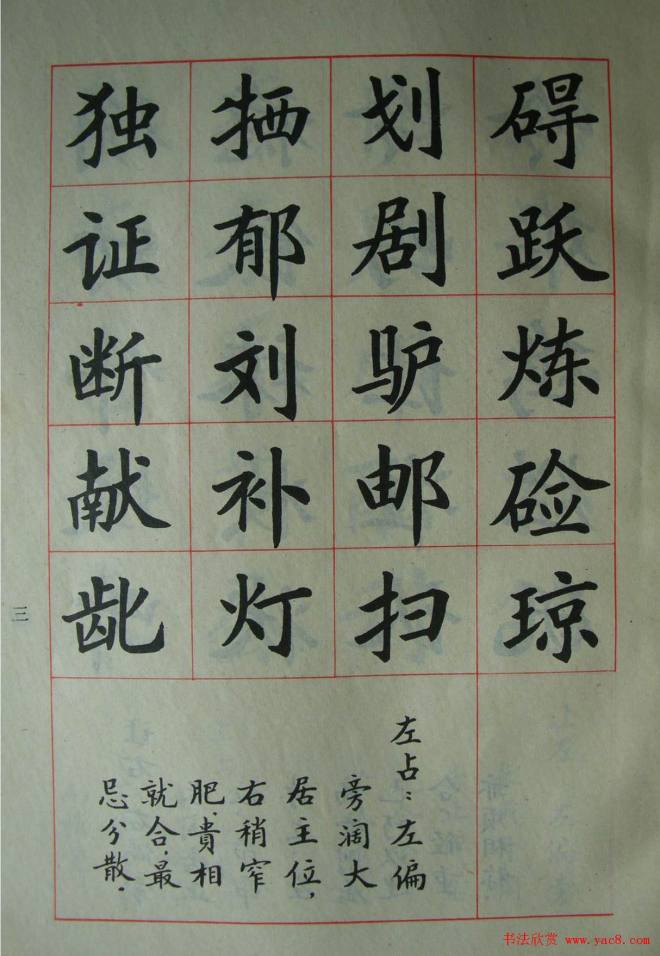 碍跃炼硷琼
划剧驴邮扫
牺郁刘补灯
独证断献龀
左占：左偏
旁阔大
居主位，
右稍窄
肥，貴相
就合，最
忌分散。
三
书法欣赏 www.yac8.com